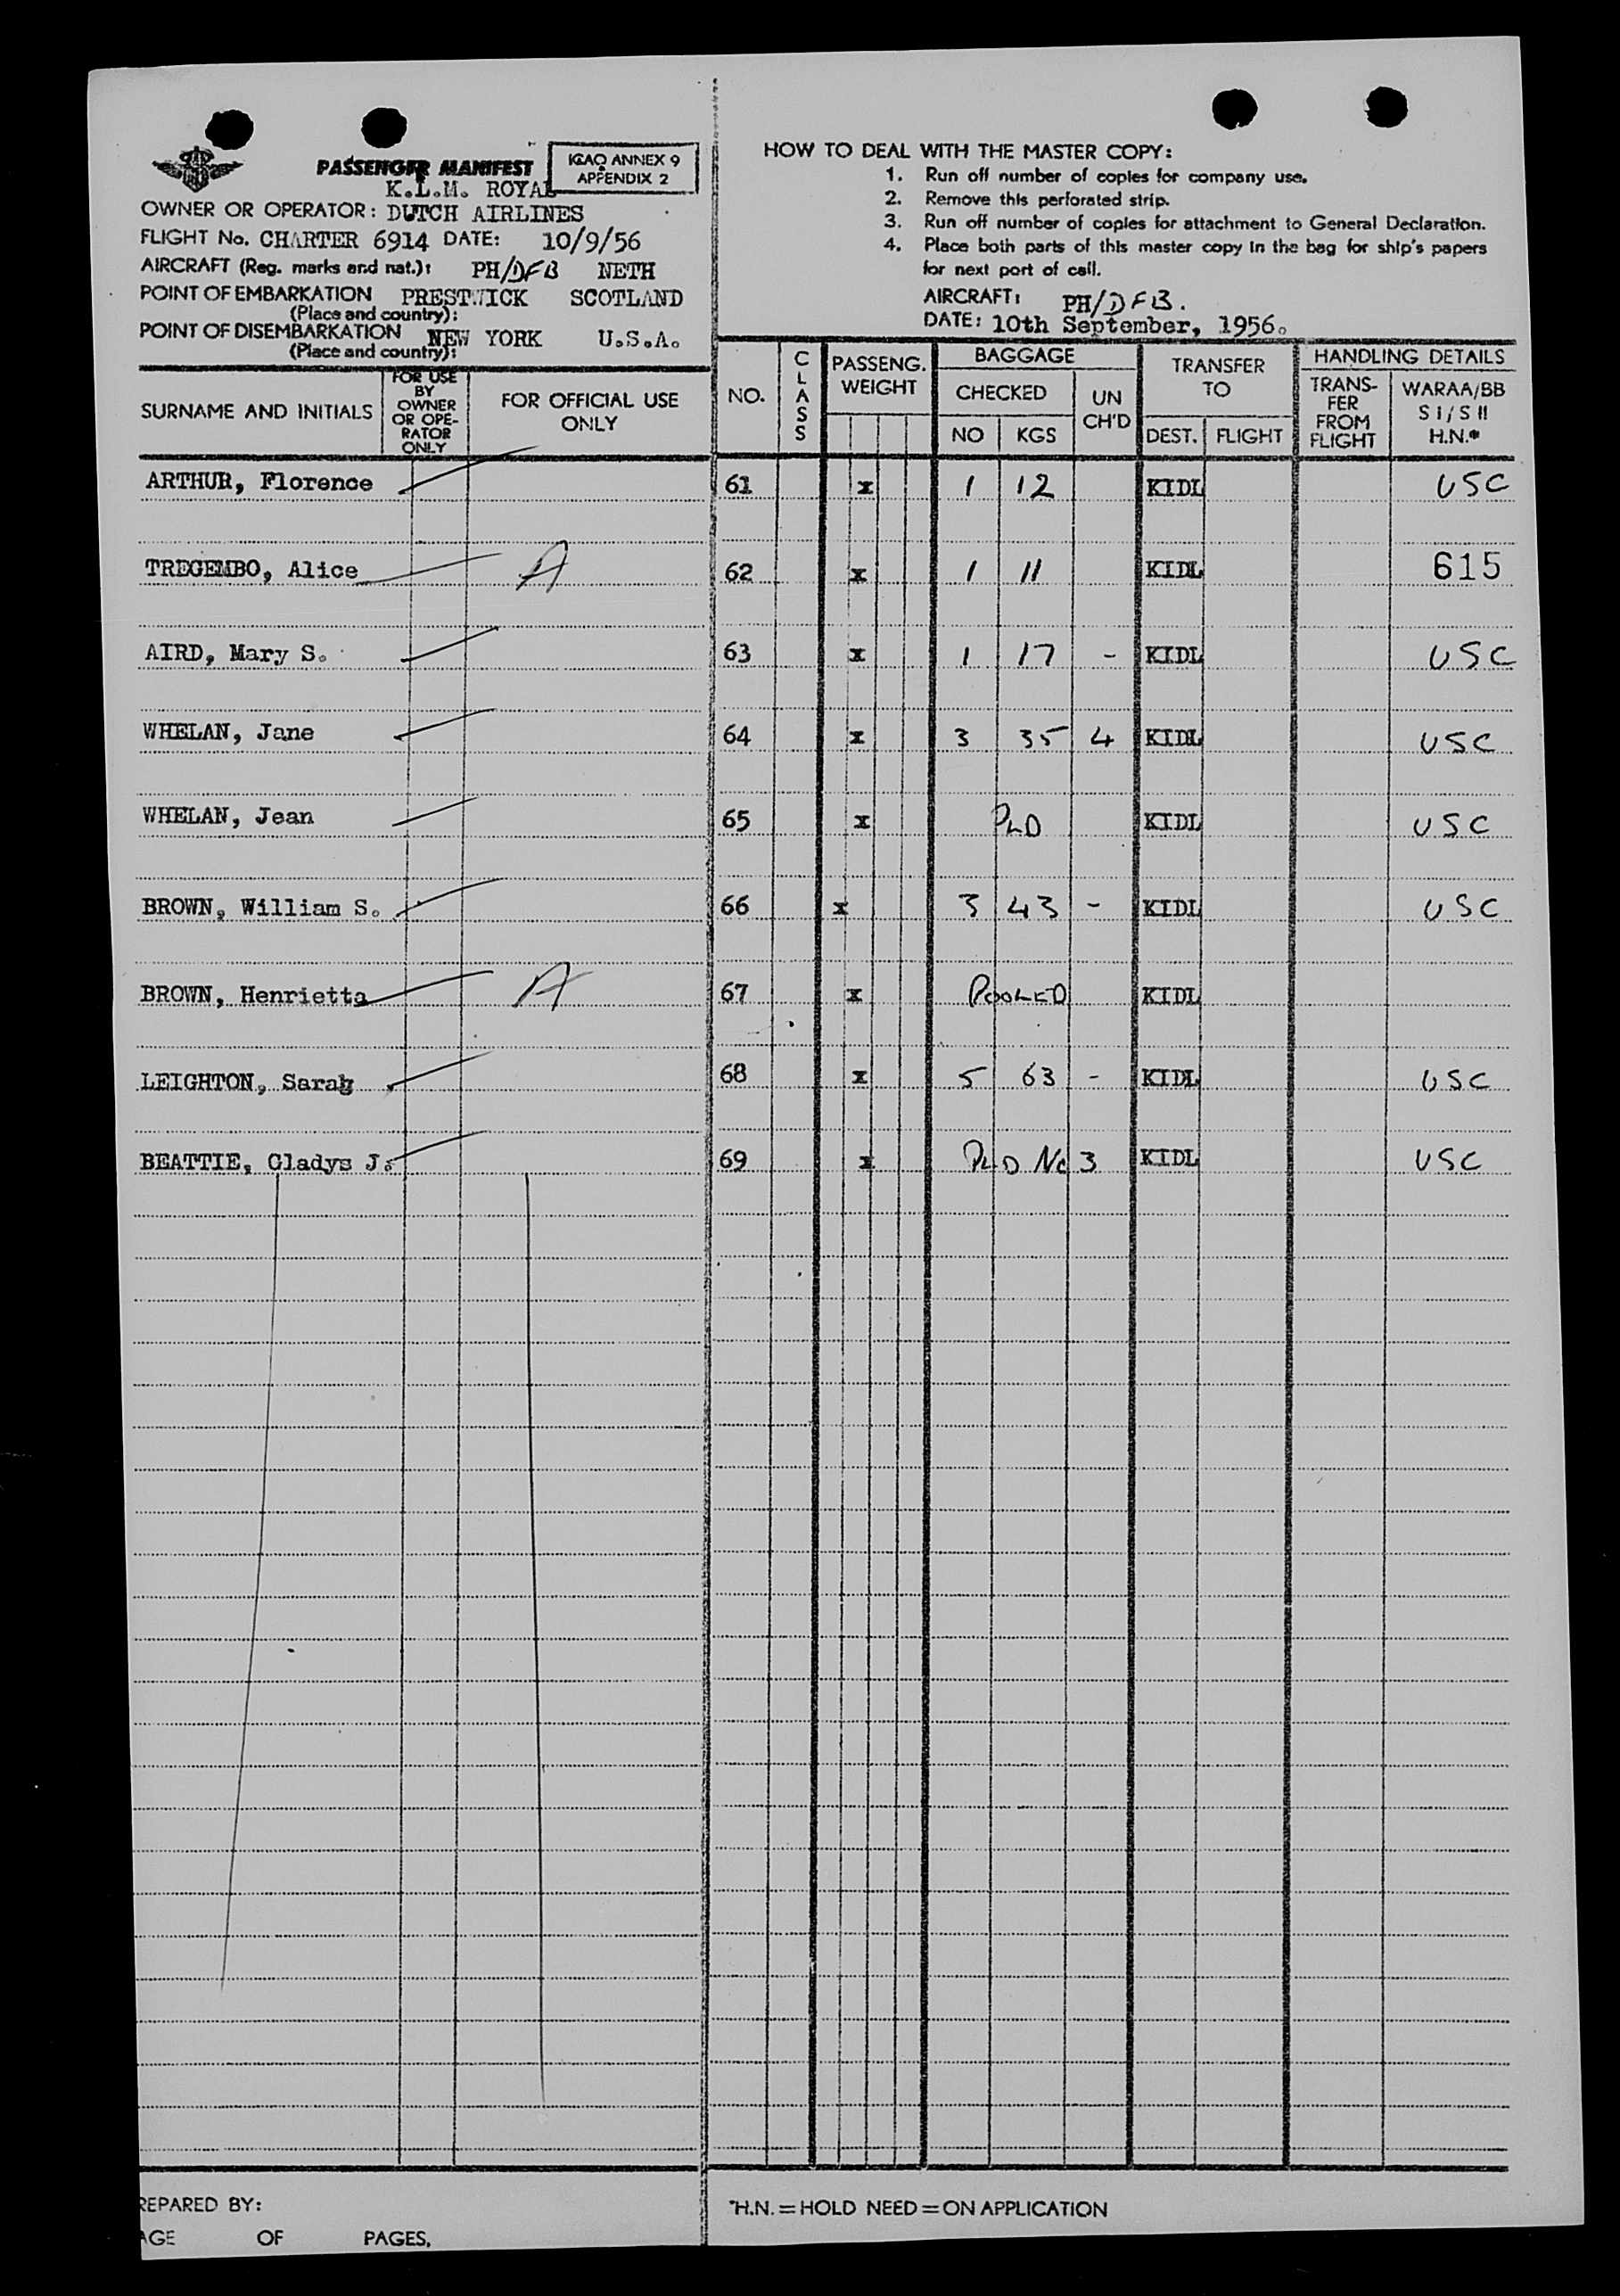 PASSENGER MANIFEST
ICAO ANNEX 9
APPENDIX 2
K.L.M. ROYAL
OWNER OR OPERATOR: DUTCH AIRLINES
FLIGHT No. CHARTER 6914 DATE: 10/9/56
AIRCRAFT (Reg. marks and nat.): PH/DFB NETH
POINT OF EMBARKATION PRESTWICK SCOTLAND
(Place and country):
POINT OF DISEMBARKATION NEW YORK U.S.A.
(Place and country):
HOW TO DEAL WITH THE MASTER COPY:
1. Run off number of copies for company use.
2. Remove this perforated strip.
3. Run off number of copies for attachment to General Declaration.
4. Place both parts of this master copy in the bag for ship's papers
for next port of call.
AIRCRAFT: PH/DFB.
DATE: 10th September, 1956.
SURNAME AND INITIALS
FOR USE
BY
OWNER
OR OPE-
RATOR
ONLY
FOR OFFICIAL USE
ONLY
NO.
CLASS
PASSENG.
WEIGHT
BAGGAGE
CHECKED
NO KGS
UN
CH'D
TRANSFER
TO
DEST. FLIGHT
HANDLING DETAILS
TRANS-
FER
FROM
FLIGHT
WARAA/BB
S I / S II
H.N.*
ARTHUR, Florence 61 x 1 12 KIDL USC
TREGEMBO, Alice A 62 x 1 11 KIDL 615
AIRD, Mary S. 63 x 1 17 - KIDL USC
WHELAN, Jane 64 x 3 35 4 KIDL USC
WHELAN, Jean 65 x PLD KIDL USC
BROWN, William S. 66 x 3 43 - KIDL USC
BROWN, Henrietta A 67 x POOLED KIDL
LEIGHTON, Sarah 68 x 5 63 - KIDL USC
BEATTIE, Gladys J. 69 x PLD No 3 KIDL USC
REPARED BY:
AGE OF PAGES,
*H.N. = HOLD NEED = ON APPLICATION